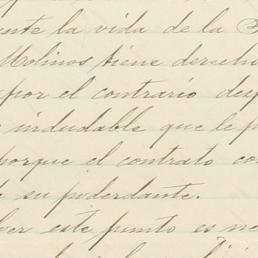 la vida de la
Molinos, tiene derech
por el contrario desp
indudable que le p
porque el contrato co
su poderdante.
este punto es ne